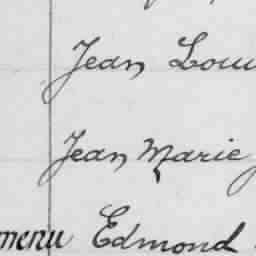 Jean Lou
Jean Marie
menu Edmond